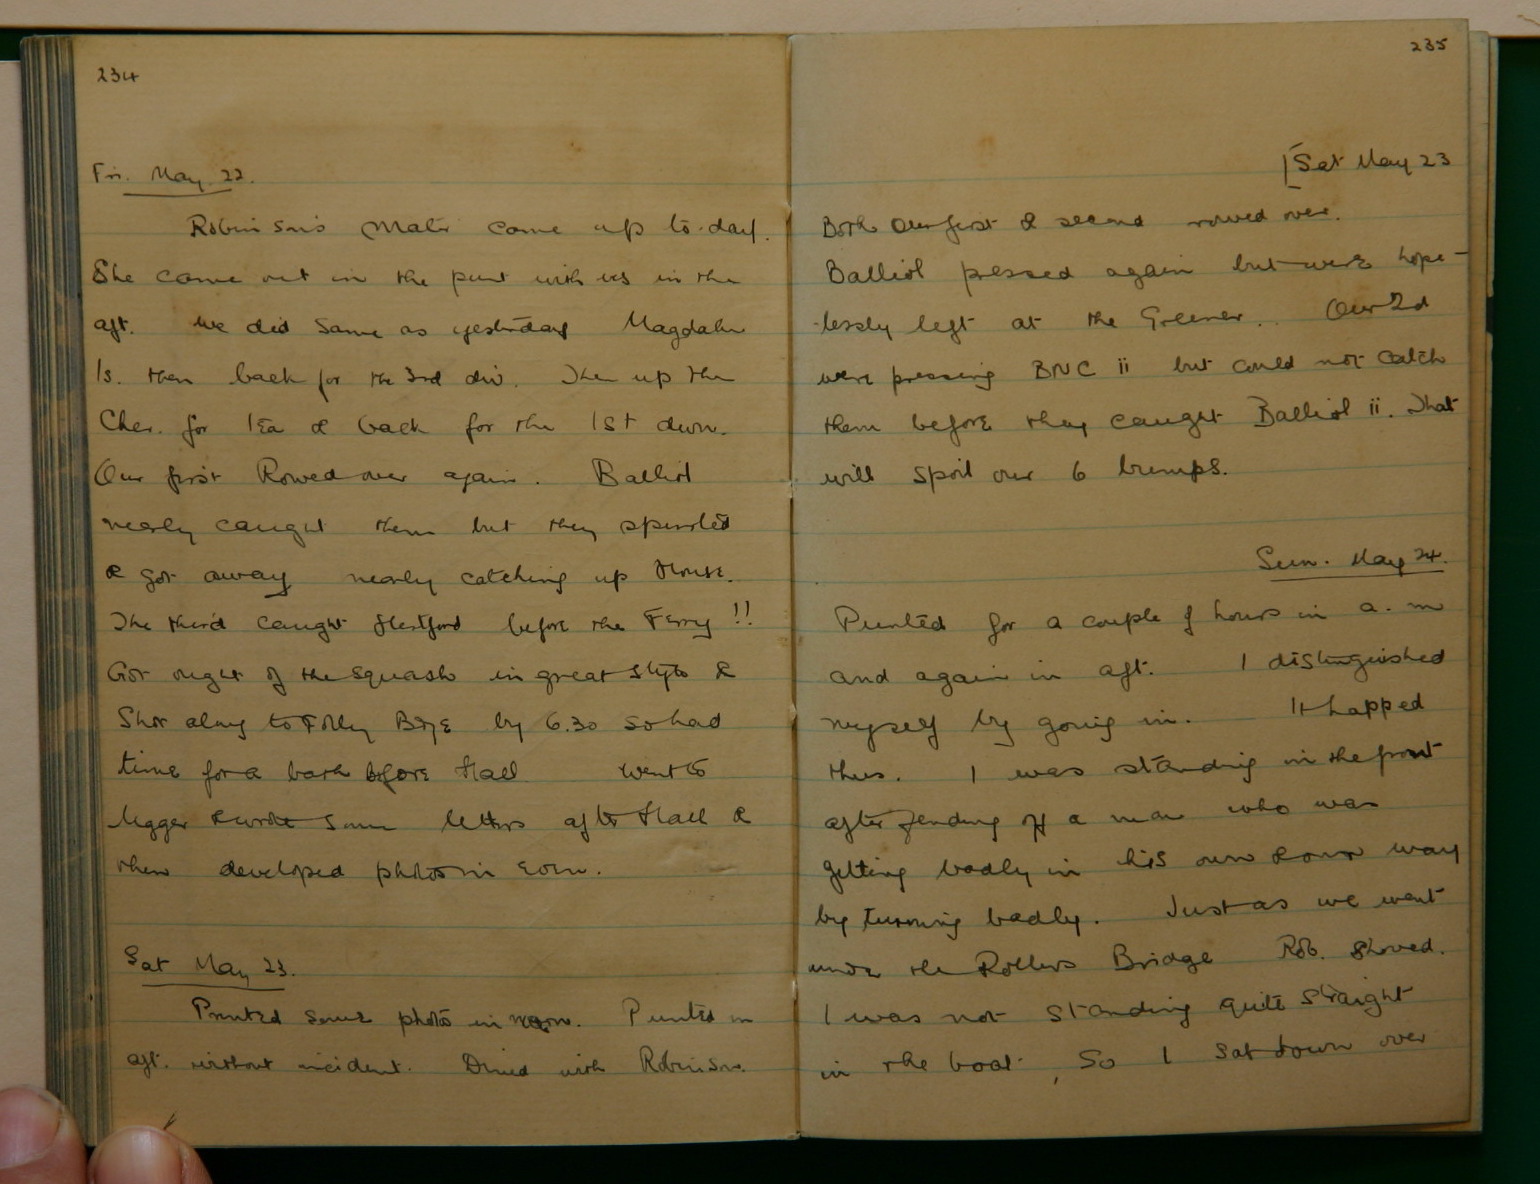 234
Fri. May 22.
Robinson's Mater came up to-day.
She came out in the punt with us in the
aft. We did same as yesterday Magdalen
Is. then back for the 3rd div. Then up the
Cher. for tea & back for the 1st divn.
Our first Rowed over again. Balliol
nearly caught them but they spurted
& got away nearly catching up House.
The third caught Hertford before the Ferry!!
Got out of the squash in great style &
Shot along to Folly Bdge by 6.30 so had
time for a bath before Hall Went to
legger & wrote some letters after Hall &
then developed photos in even.
Sat May 23.
Printed some photos in morn. Punted in
aft. without incident. Dined with Robinson.
235
[Sat May 23
Both our first & second rowed over.
Balliol pressed again but were hope-
-lessly left at the Greener. Our 2d
were pressing BNC ii but could not catch
them before they caught Balliol ii. That
will spoil our 6 bumps.
Sun. May 24.
Punted for a couple of hours in a.m
and again in aft. I distinguished
myself by going in. It happed
thus. I was standing in the front
after fending off a man who was
getting badly in his own & our way
by turning badly. Just as we went
under the Rollers Bridge Rob. shoved.
I was not standing quite straight
in the boat, So I sat down over